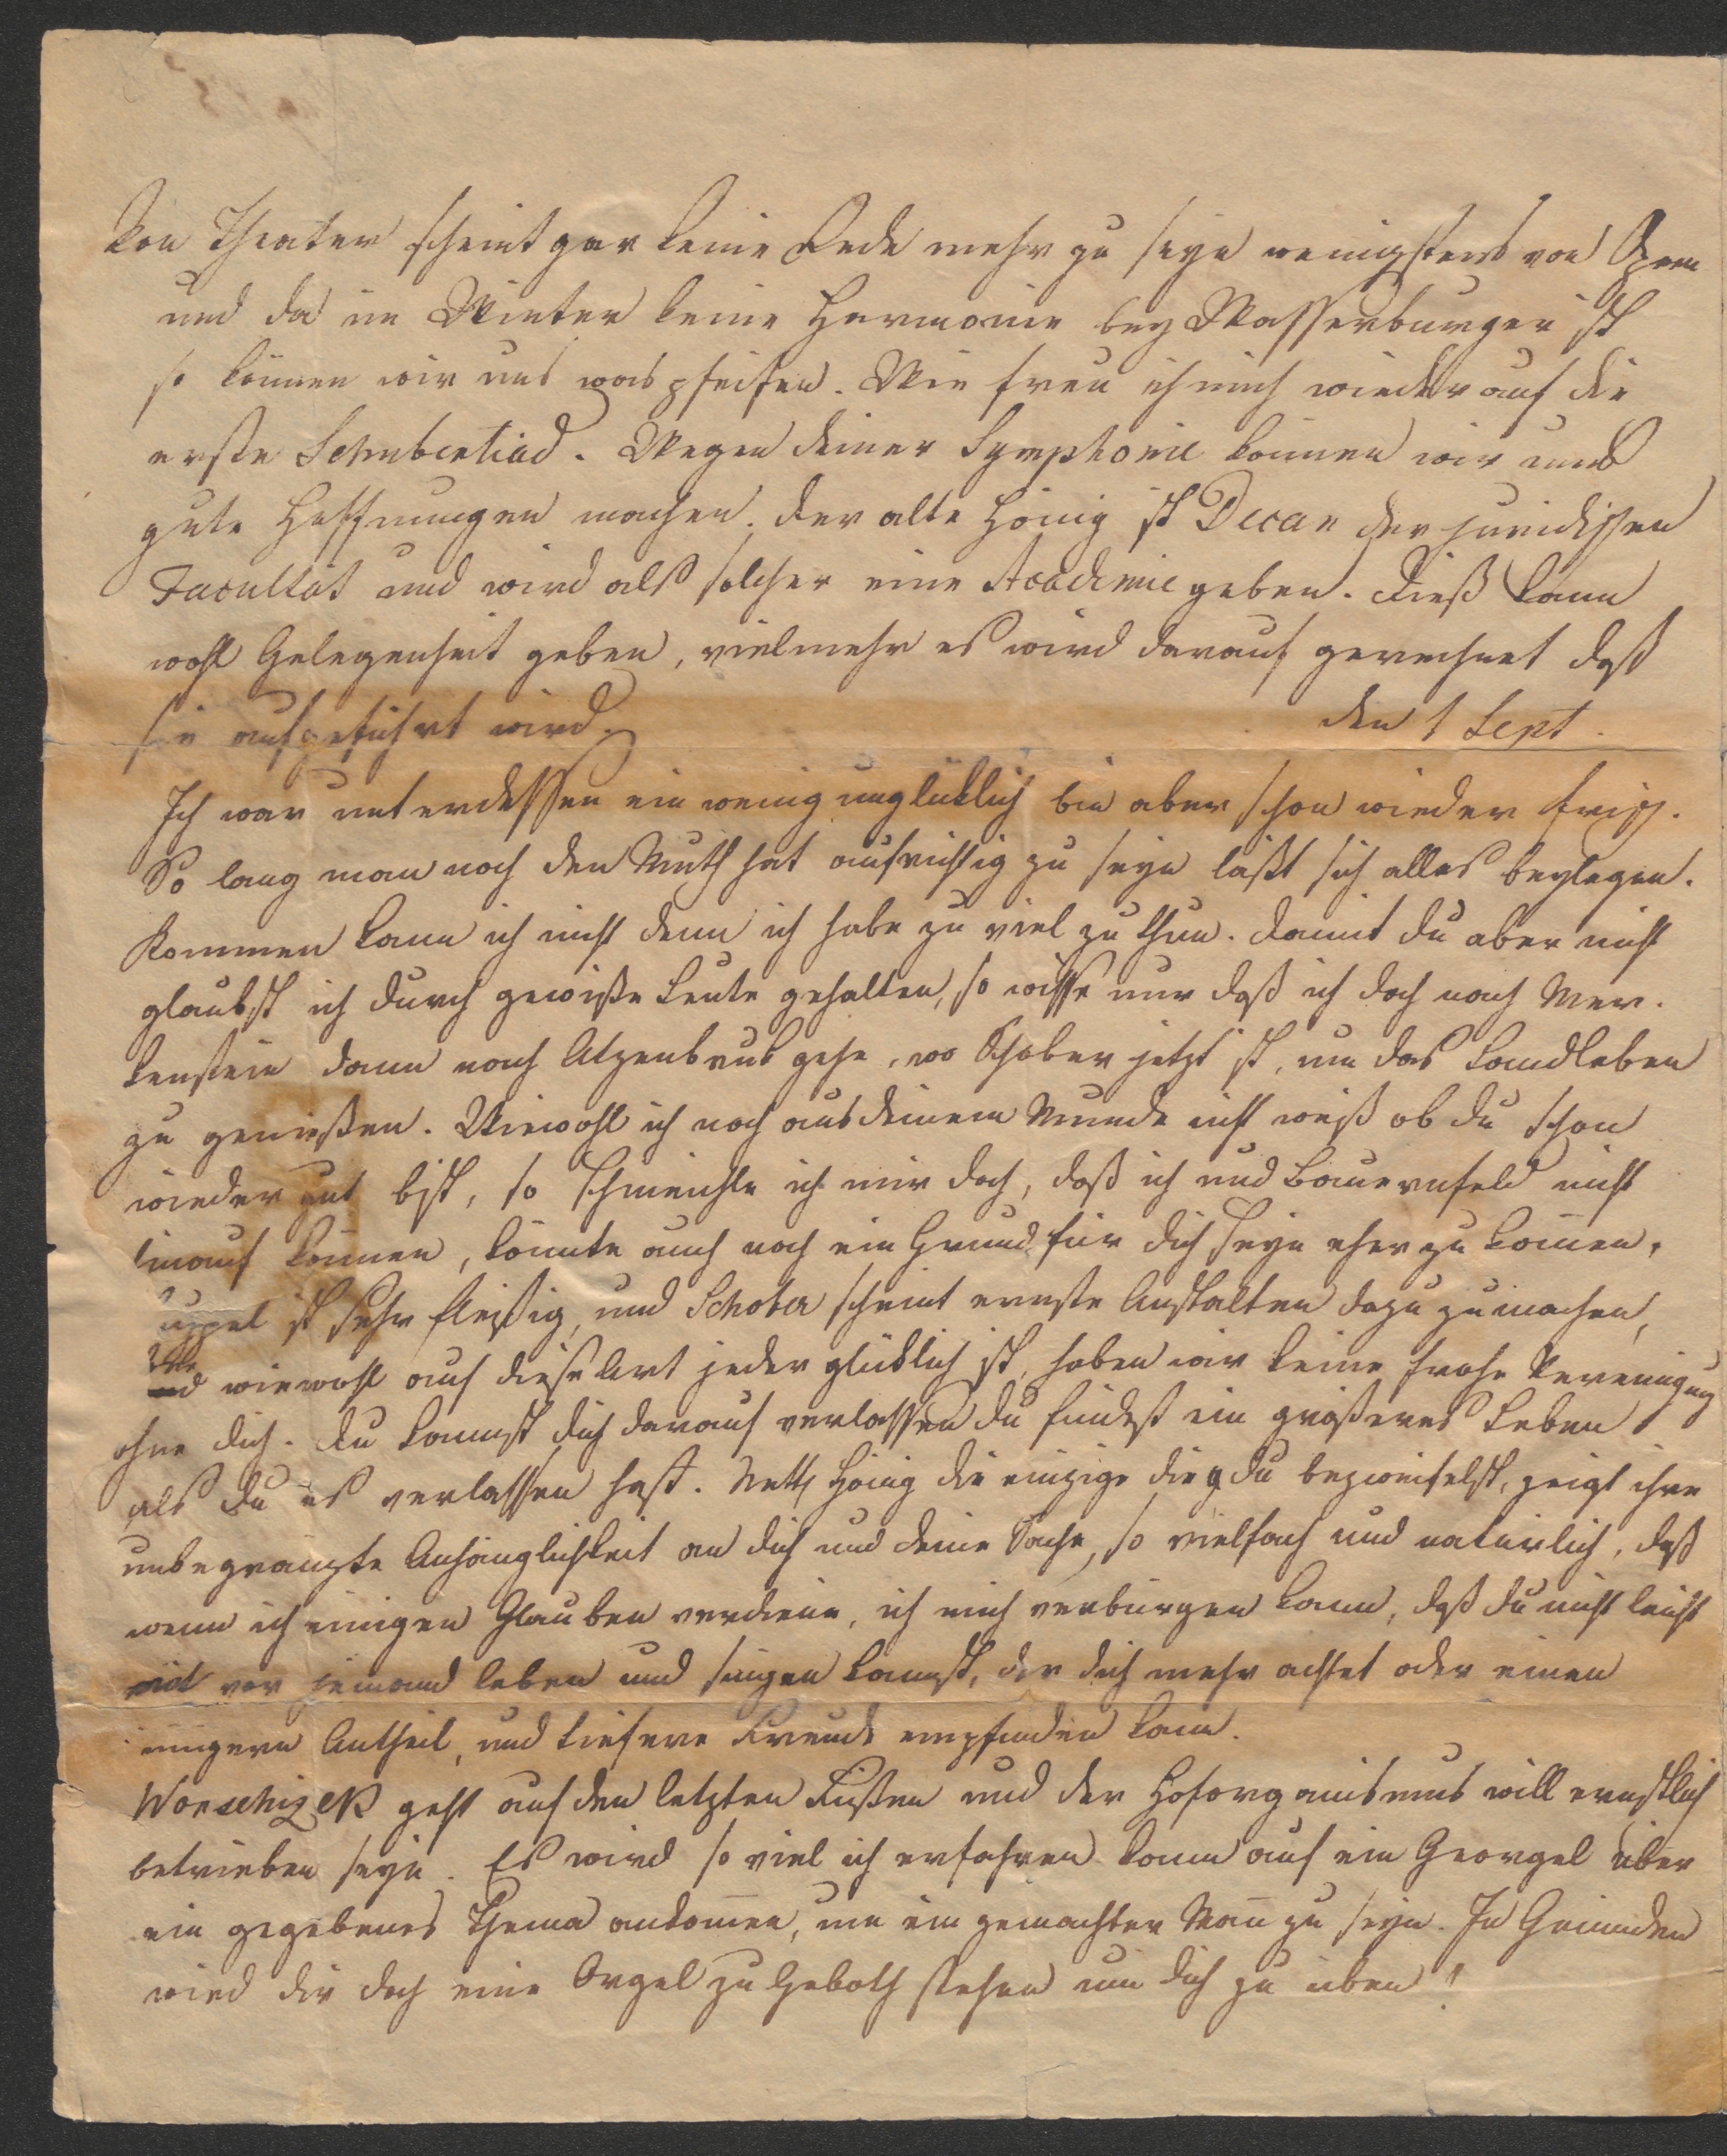 Von Theater scheint gar keine Rede mehr zu seyn wenigstens von Opern
und da im Winter keine Harmonie bey Wasserburger ist
so können wir uns was pfeifen. Wie freu ich mich wieder auf die
erste Schubertiad. Wegen deiner Symphonie können wir uns
gute Hoffnungen machen. Der alte Hönig ist Decan der juridischen
Facultät und wird als solcher eine Academie geben. Dieß kann
wohl Gelegenheit geben, vielmehr es wird darauf gerechnet daß
sie aufgeführt wird. den 1 Sept.
Ich war unterdessen ein wenig unglüklich bin aber schon wieder frisch.
So lang man noch den Muth hat aufrichtig zu seyn läßt sich alles beylegen.
Kommen kann ich nicht denn ich habe zu viel zu thun. Damit du aber nicht
glaubst ich durch gewiße Leute gehalten, so wisse nur daß ich doch nach Mer-
kenstein dann nach Atzenbruk gehe, wo Schober jetzt ist, um das Landleben
zu genießen. Wiewohl ich noch aus deinem Munde nicht weiß ob du schon
wieder gut bist, so schmeichle ich mir doch, daß ich und Bauernfeld nicht
hinauf können, könnte auch noch ein Grund für dich seyn eher zu kom̄en.
ist sehr fleißig, und Schober scheint ernste Anstalten dazu zu machen,
und wiewohl auf diese Art jeder glüklich ist, haben wir keine frohe Vereinigung
ohne dich. Du kannst dich darauf verlassen du findest ein größeres Leben
als du es verlassen hast. Nettl Hönig die einzige die du bezweifelst, zeigt ihre
unbegränzte Anhänglichkeit an dich und deine Sache, so vielfach und natürlich, daß
wenn ich einigen Glauben verdiene, ich mich verbürgen kann, daß du nicht leicht
mit vor jemand leben und singen kannst, der dich mehr achtet oder einen
innigern Antheil, und tiefere Freude empfinden kann.
Worschizek geht auf den letzten Füßen und der Hoforganismus will ernstlich
betrieben seyn. Es wird so viel ich erfahren kann auf ein Georgel über
ein gegebenes Thema ankom̄en, um ein gemachter Man̄ zu seyn. In Gmunden
wird dir doch eine Orgel zu Geboth stehen um dich zu üben!